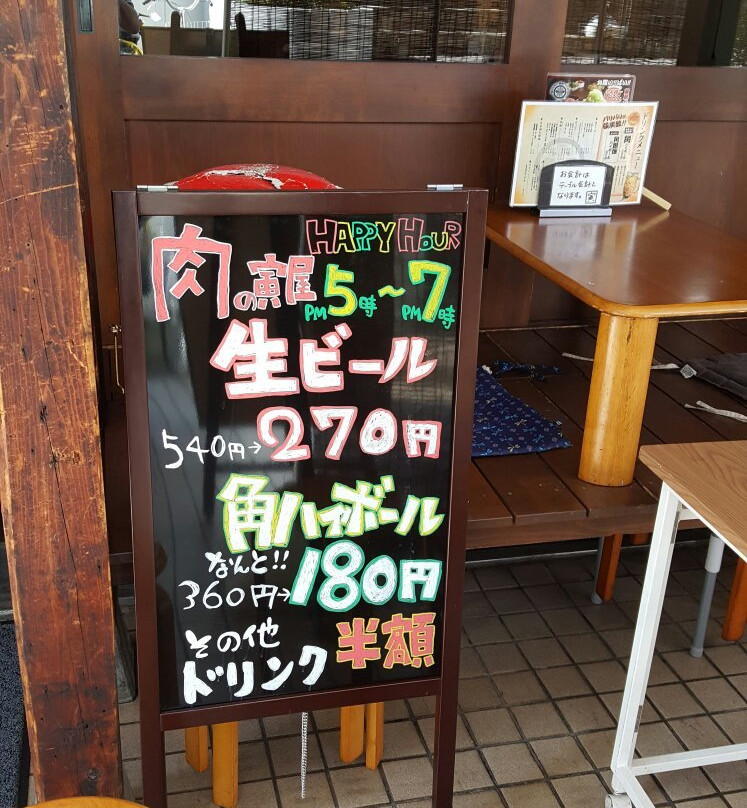 HAPPY HOUR
肉の寅屋 PM5時〜PM7時
生ビール
540円→270円
角ハイボール
なんと!!
360円→180円
その他
ドリンク 半額
ドリンクメニュー
お会計は
テーブル会計と
なります。